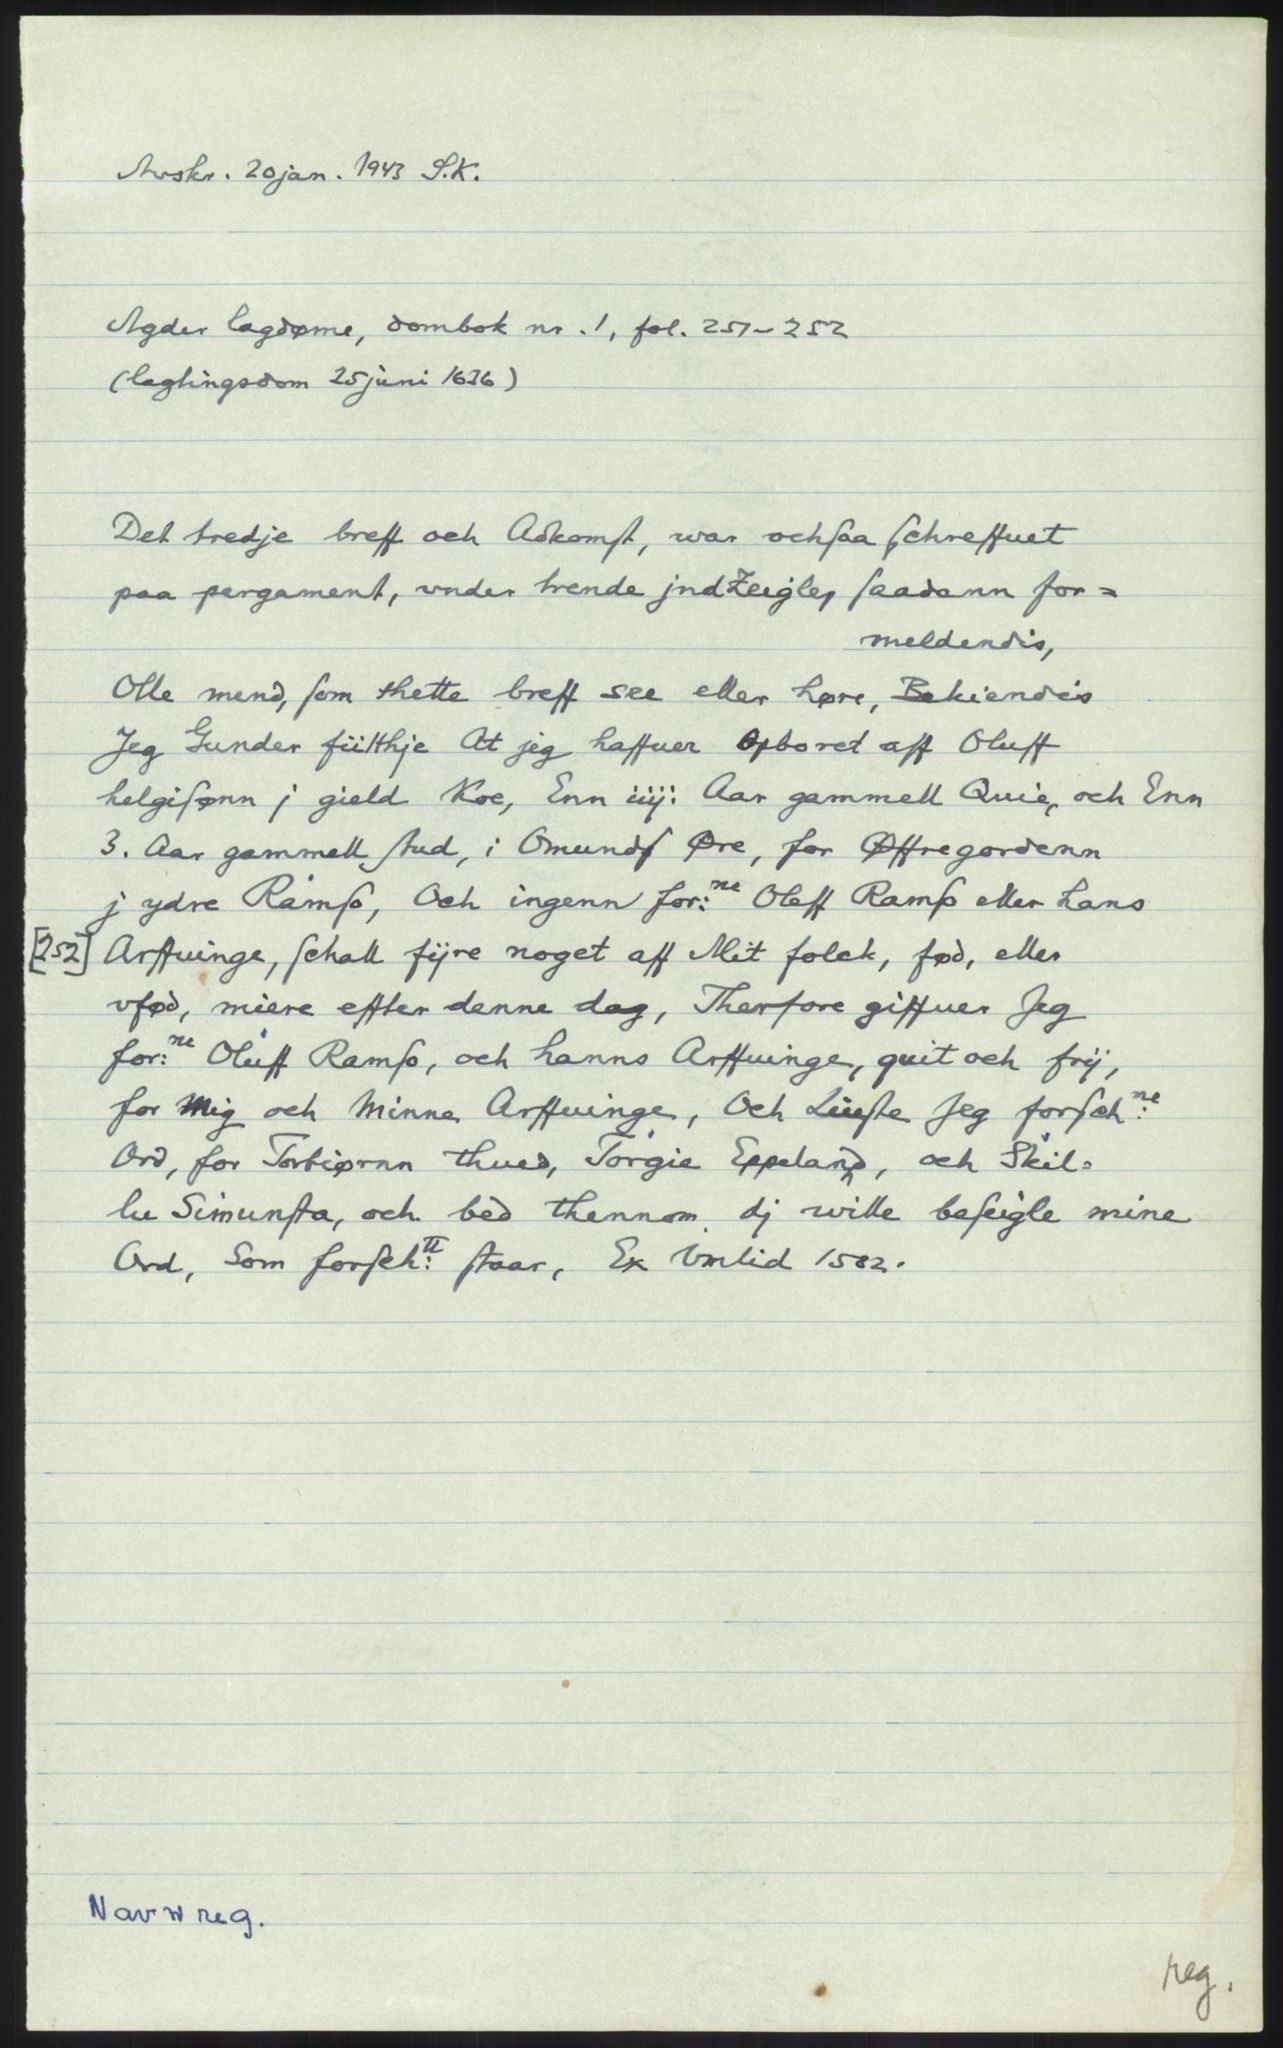 Avskr. 20 jan. 1943 S.K.
Agder lagdøme, dombok nr. 1, fol. 251-252
(lagtingsdom 25 juni 1636)
Det tredje breff och Adkomst, war ochsaa schreffuet
paa pergament, vnder trende jndZeigler saadann for=
meldendis,
Olle mend, som thette breff see eller høre, Bekiendeis
Jeg Gunder fütthje At jeg haffuer Opboret aff Oluff
helgisønn j gield Koe, Enn iiij: Aar gammell Quie, och Enn
3. Aar gammell stud, i Omunds Øre, for Øffregordenn
j ydre Ramss, Och ingenn for:ne Oleff Ramss eller hans
[252] Arffuinge, schall fijre noget aff Mit folck, fød, eller
vfød, miere effter denne dag, Therfore giffuer Jeg
for:ne Oluff Ramss, och hanns Arffuinge, quit och frij,
for mig och Minne Arffuinge, Och Liuste Jeg forsch:ne
Ord, for Torbiørnn thued, Torgie Eppeland, och Skil=
lu Simunsta, och bed thennom dj wille beseigle mine
Ord, som forsch:tt staar, Ex Vmlid 1582.
Navnreg.
reg.